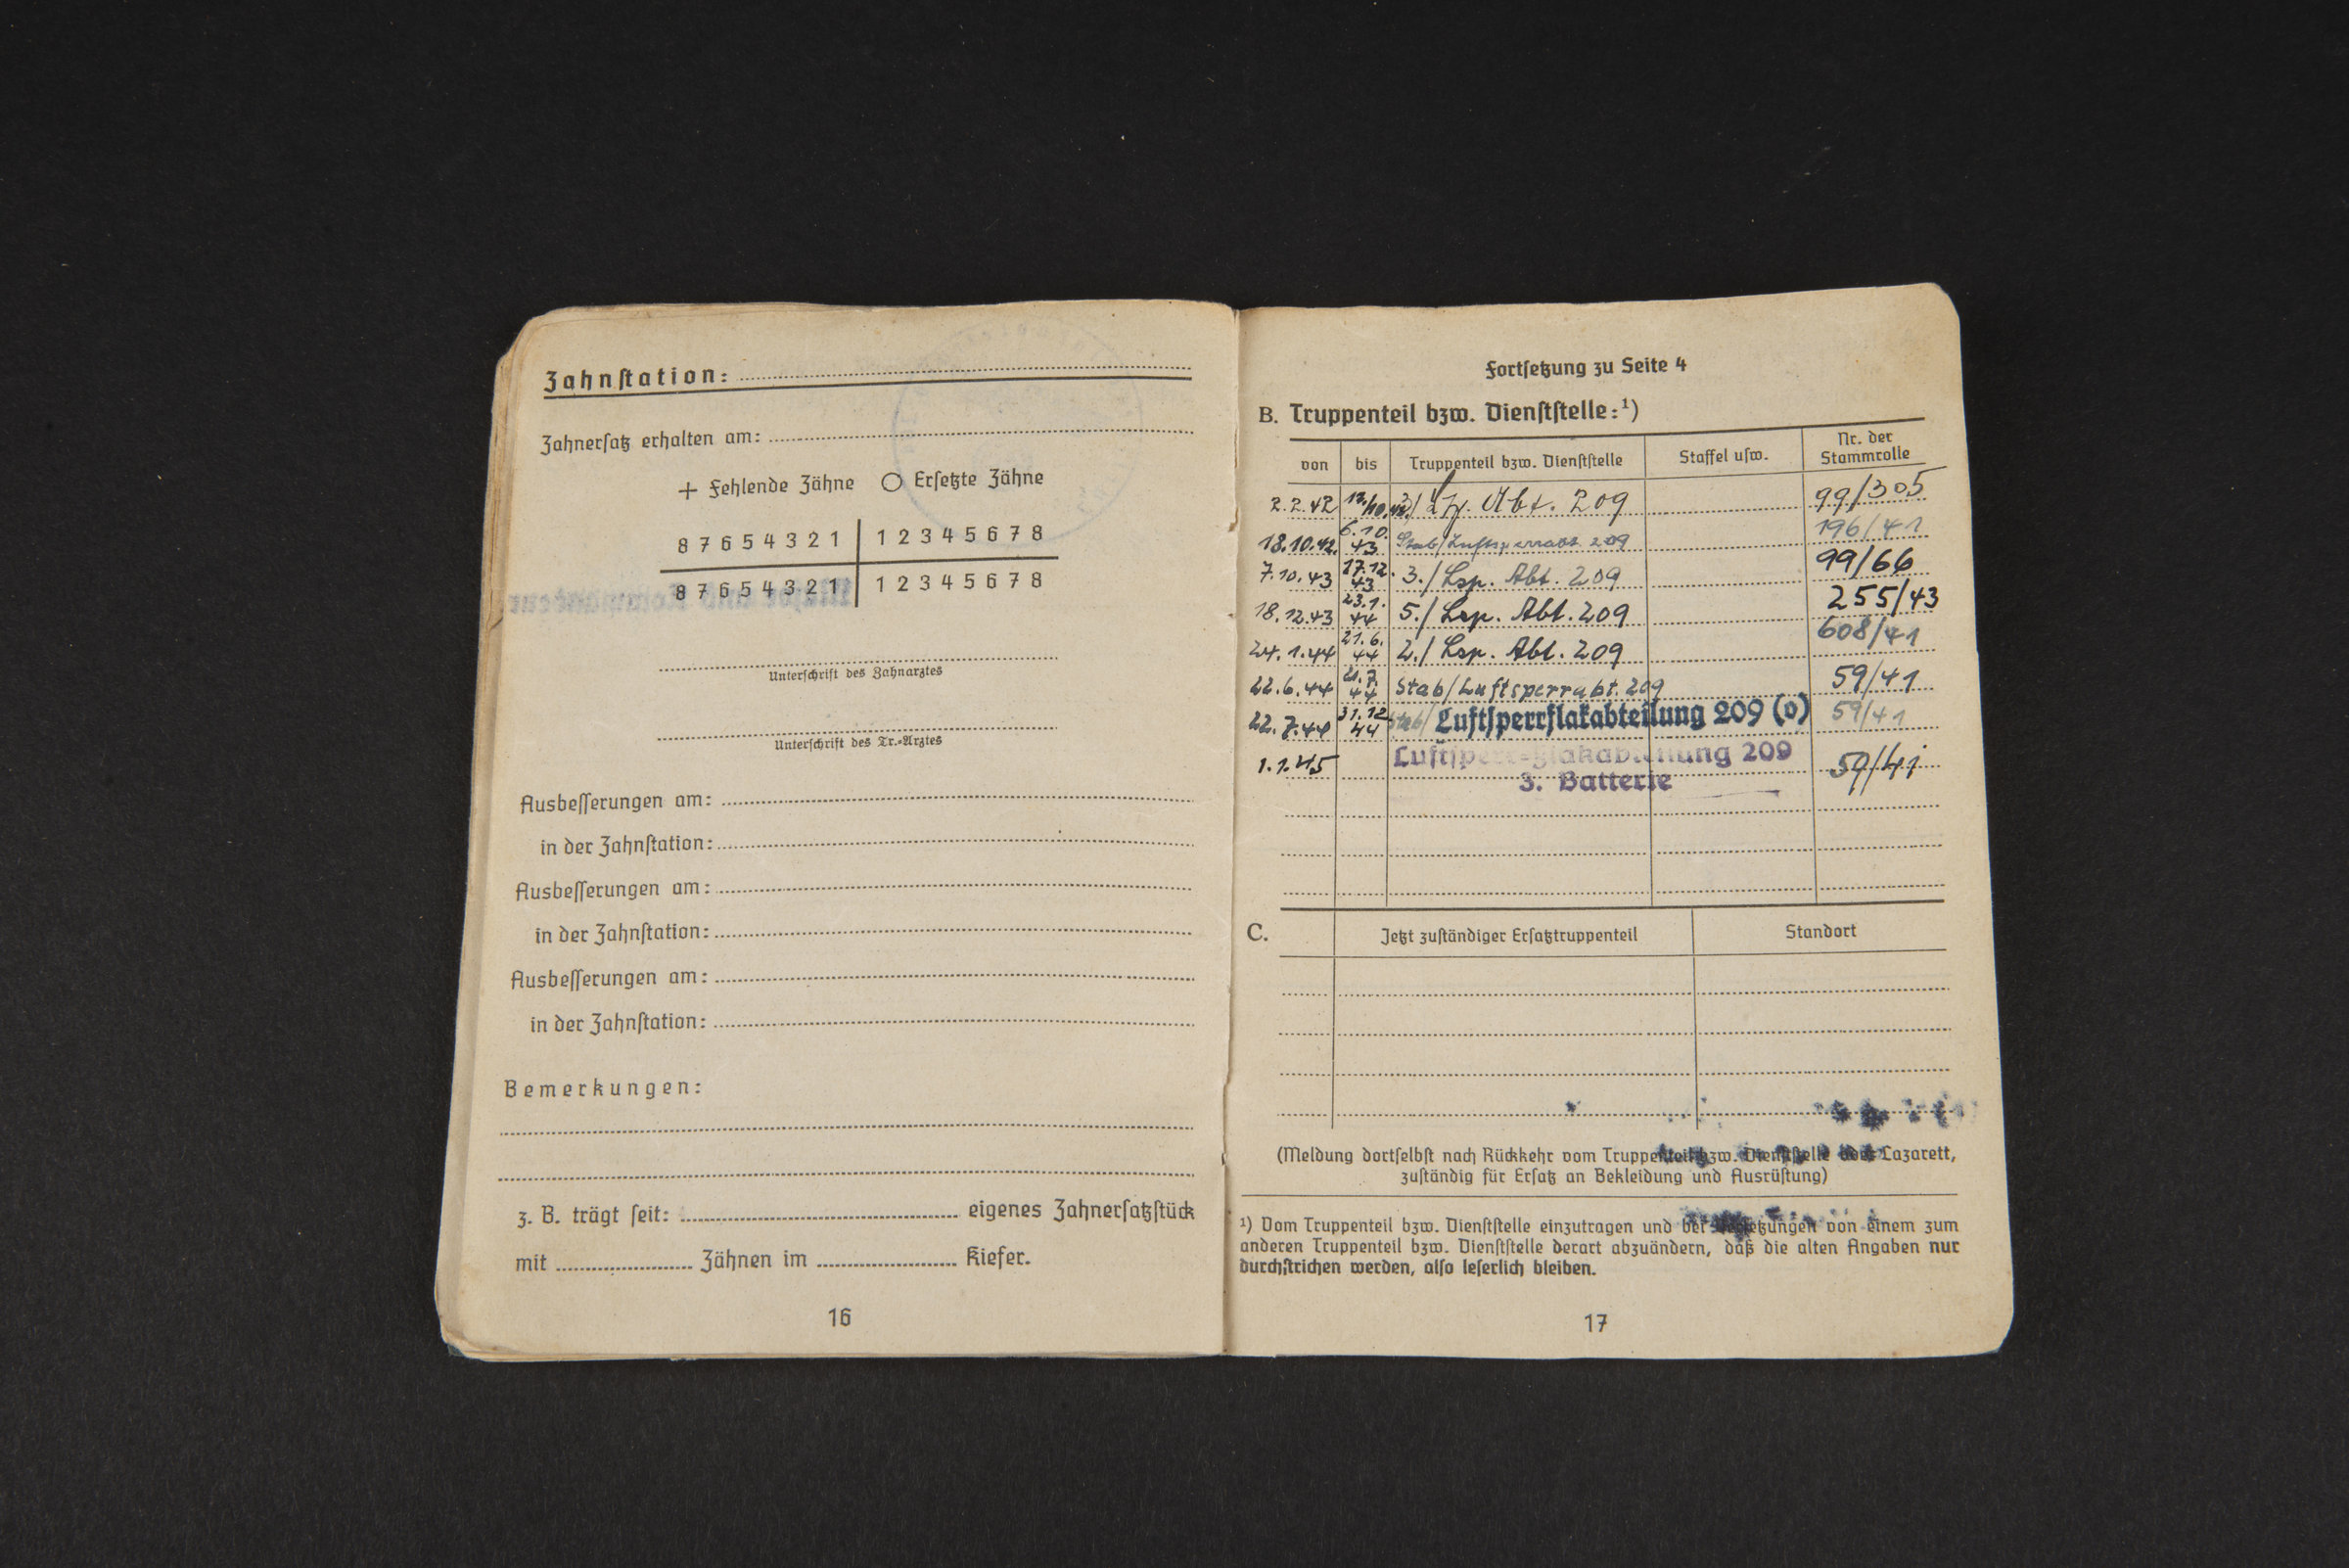 Zahnſtation:
Zahnerſatz erhalten am:
+ Fehlende Zähne ○ Erſetzte Zähne
8 7 6 5 4 3 2 1 | 1 2 3 4 5 6 7 8
8 7 6 5 4 3 2 1 | 1 2 3 4 5 6 7 8
Unterſchrift des Zahnarztes
Unterſchrift des Tr.-Arztes
Ausbeſſerungen am:
in der Zahnſtation:
Ausbeſſerungen am:
in der Zahnſtation:
Ausbeſſerungen am:
in der Zahnſtation:
Bemerkungen:
z. B. trägt ſeit: eigenes Zahnerſatzſtück
mit Zähnen im Kiefer.
16
Fortſetzung zu Seite 4
B. Truppenteil bzw. Dienſtſtelle:¹)
von bis Truppenteil bzw. Dienſtſtelle Staffel uſw. Nr. der Stammrolle
2.2.42 Abt. 209 99/305
18.10.42. 6.10.43 Stab/Luftsperrabt 209 196/41
7.10.43 17.12.43 3./Lsp. Abt. 209 99/66
18.12.43 23.1.44 5./Lsp. Abt. 209 255/43
24.1.44 21.6.44 2./Lsp. Abt. 209 608/41
22.6.44 21.7.44 Stab/Luftsperrabt. 209 59/41
22.7.44 31.12.44 Stab/Luftſperrflakabteilung 209 (o) 59/41
1.1.45 Luftſperr-Flakabteilung 209 59/41
3. Batterie
C. Jetzt zuſtändiger Erſatztruppenteil Standort
(Meldung dortſelbſt nach Rückkehr vom Truppenteil bzw. Dienſtſtelle oder Lazarett,
zuſtändig für Erſatz an Bekleidung und Ausrüſtung)
¹) Vom Truppenteil bzw. Dienſtſtelle einzutragen und bei Verſetzungen von einem zum
anderen Truppenteil bzw. Dienſtſtelle derart abzuändern, daß die alten Angaben nur
durchſtrichen werden, alſo leſerlich bleiben.
17